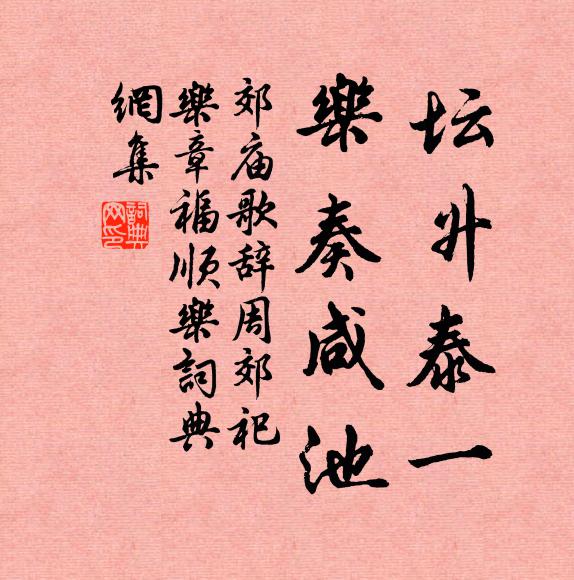 坛升泰一
樂奏咸池
郊庙歌辞周郊祀
樂章福顺樂詞典
網集
詞典
网印